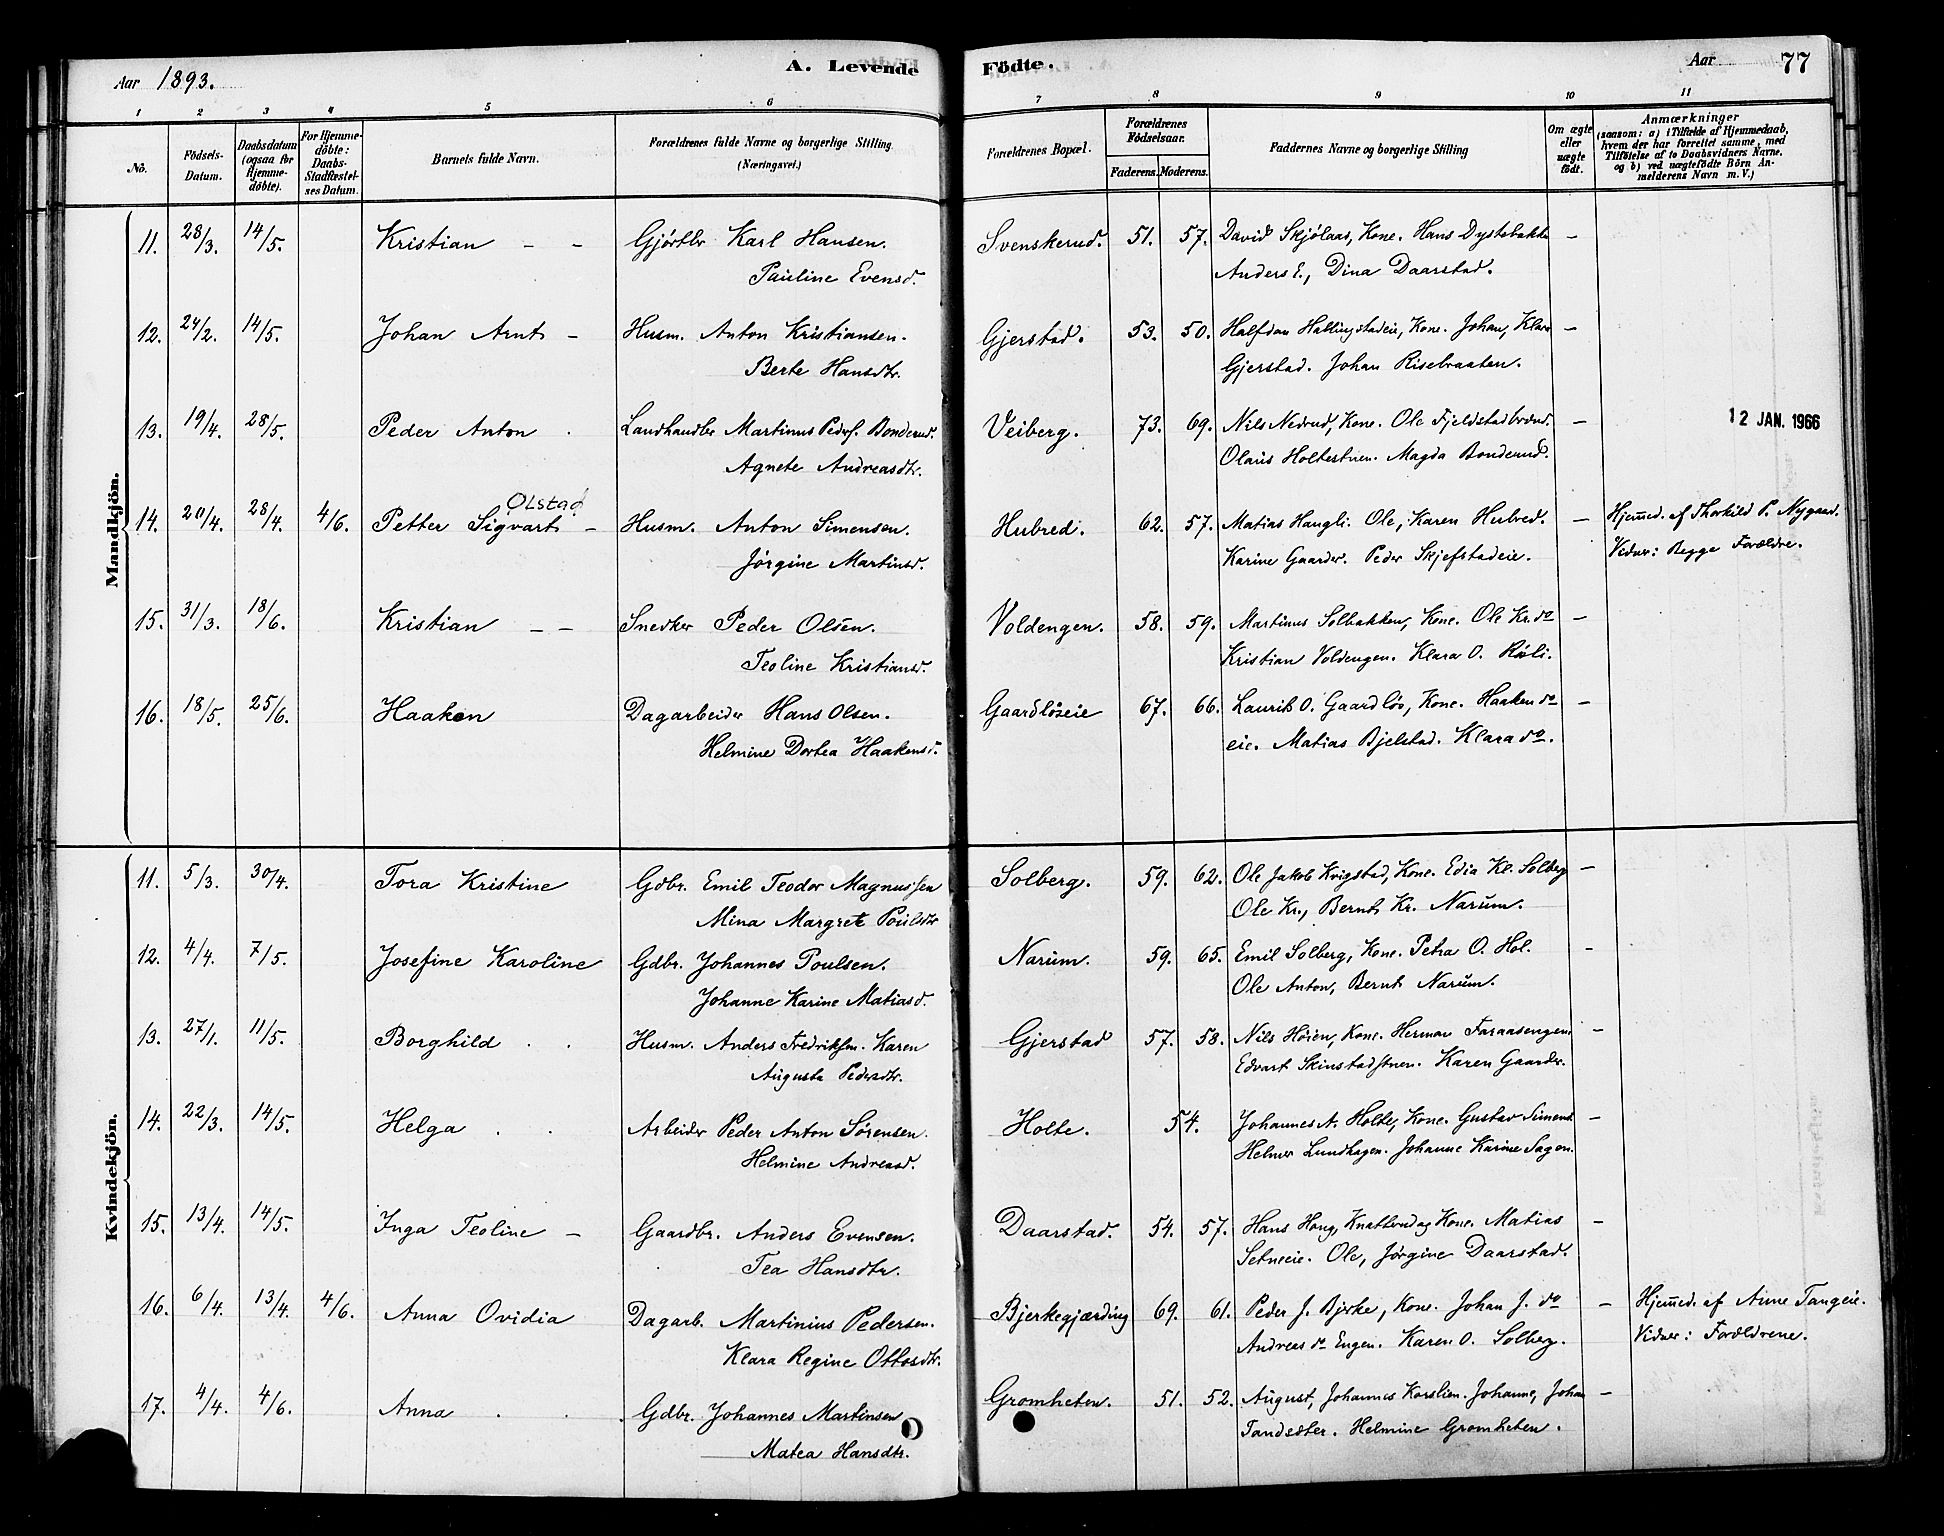 Aar 1893.
A. Levende
Födte.
Aar
77
1 2 3 4 5 6 7 8 9 10 11
No.
Födsels-Datum.
Daabsdatum (ogsaa for Hjemmedöbte).
For Hjemmedöbte: Daabs-Stadfæstelses Datum.
Barnets fulde Navn.
Forældrenes fulde Navne og borgerlige Stilling
(Næringsvei.)
Forældrenes Bopæl.
Forældrenes Födselsaar.
Faderens. Moderens.
Faddernes Navne og borgerlige Stilling
Om ægte eller uægte födt.
Anmærkninger
(saasom: a) i Tilfælde af Hjemmedaab,
hvem der har forrettet samme, med
Tilföielse af to Daabsvidners Navne.
og b) ved uægtefödte Börn An-
melderens Navn m. V.)
Mandkjön.
11. 28/3. 14/5. Kristian – – Gjørtler Karl Hansen. Svenskerud. 51. 57. David Skjölaas, Kone. Hans Dystebakke –
Pauline Evensd. Anders E., Dina Daarstad.
12. 24/2. 14/5. Johan Arnt – Husm. Anton Kristiansen. Gjerstad. 53. 50. Halfdan Hallingstadeie, Kone. Johan, Klara –
Berte Hansdtr. Gjerstad. Johan Risebraaten.
13. 19/4. 28/5. Peder Anton . Landhandler Martinus Peders. Bonderud. Veiberg. 73. 69. Nils Nedrud, Kone. Ole Fjeldstadbrænd. – 12 JAN. 1966
Agnete Andreasdtr. Olaus Holtestuen. Magda Bonderud.
Olstad
14. 20/4. 28/4. 4/6. Petter Sigvart – Husm. Anton Simensen. Hubred. 62. 57. Matias Haugli. Ole, Karen Hubred. – Hjemmed. af Thorkild P. Nygaard.
Jørgine Martinsd. Karine Gaarder. Peder Skjefstadeie. Vidner: Begge Forældre.
15. 31/3. 18/6. Kristian – – Snedker Peder Olsen. Voldengen. 58. 59. Martinus Solbakken, Kone. Ole Kr. do –
Teoline Kristiansd. Kristian Voldengen. Klara O. Röli.
16. 18/5. 25/6. Haaken Dagarbeider Hans Olsen. Gaardløseie 67. 66. Laurits O. Gaardløs, Kone. Haaken do –
Helmine Dortea Haakensd. eie. Matias Bjelstad. Klara do.
Kvindekjön.
11. 5/3. 30/4. Tora Kristine Gdbr. Emil Teodor Magnussen Solberg. 59. 62. Ole Jakob Kvigstad, Kone. Edia Kl. Solberg –
Mina Margrete Poulsdtr Ole Kr., Bernt Kr. Narum.
12. 4/4. 7/5. Josefine Karoline Gdbr. Johannes Poulsen. Narum. 59. 65. Emil Solberg, Kone. Petra O. Hol. –
Johanne Karine Matiasd. Ole Anton, Bernt Narum.
13. 27/1. 11/5. Borghild . . Husm. Anders Fredriksen. Karen Gjerstad 57. 58. Nils Höien, Kone. Herman Faraasengen –
Augusta Pedersdtr. Edvart Skinstadstuen. Karen Gaarder.
14. 22/3. 14/5. Helga . . Arbeider Peder Anton Sörensen. Holte. 54. Johannes A. Holte, Kone. Gustav Simens. –
Helmine Andreasd. Helmer Lundhagen. Johanne Karine Sagen.
15. 13/4. 14/5. Inga Teoline – Gaardbr. Anders Evensen. Daarstad. 54. 57. Hans Haug, Knatterud og Kone. Matias –
Tea Hansdtr. Setneeie. Ole, Jørgine Daarstad.
16. 6/4. 13/4. 4/6. Anna Ovidia Dagarb. Martinius Pedersen. Bjerkegjærding 69. 61. Peder J. Bjrke, Kone. Johan J. do – Hjemmed. af Anne Tangeie.
Klara Regine Ottosdtr. Andreas do Engen. Karen O. Solberg. Vidner: Forældrene.
17. 4/4. 4/6. Anna . . Gdbr. Johannes Martinsen Gromheten. 51. 52. August, Johannes Korslien. Johanne, Johan –
Matea Hansdtr. Tandsæter. Helmine Gromheten.